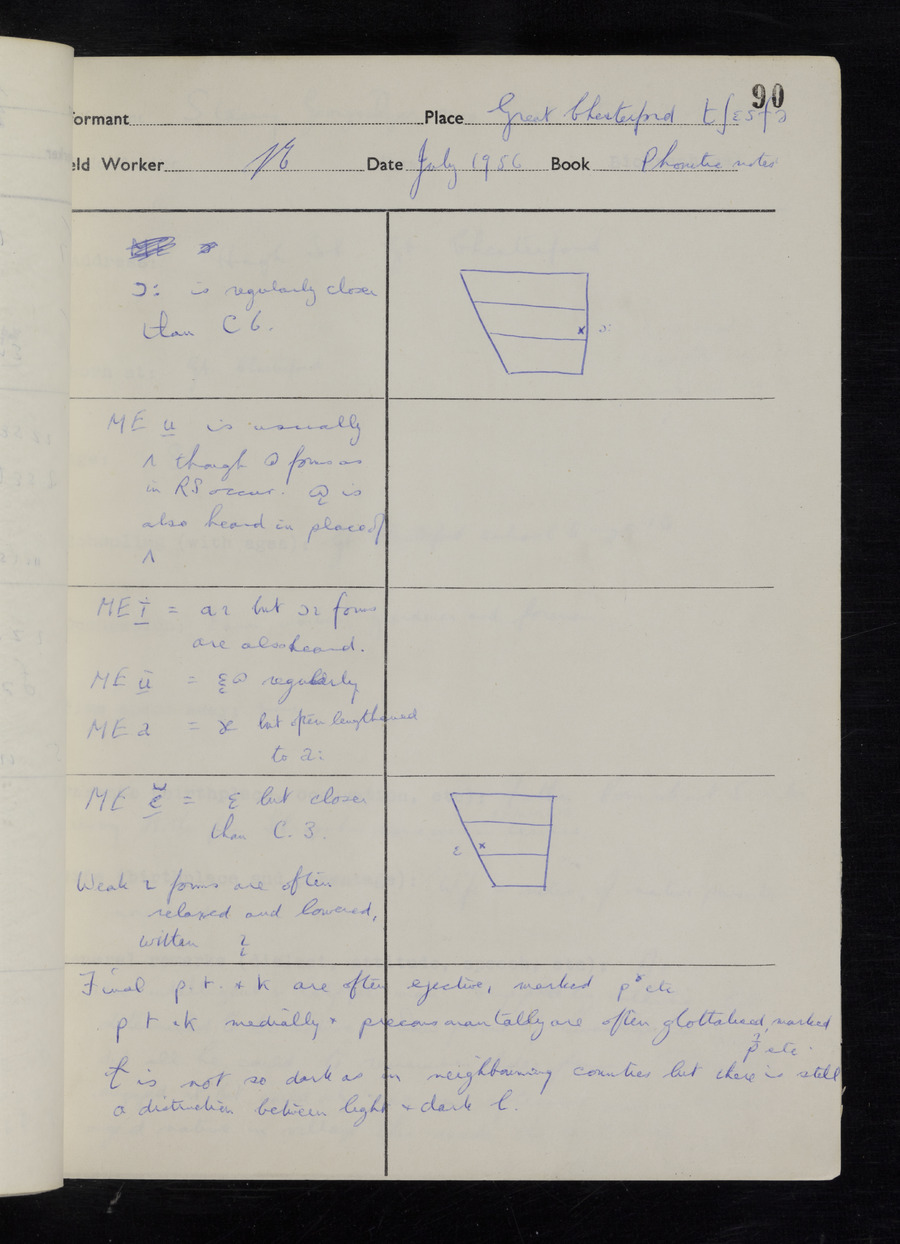 90
formant Place Great Chesterford tʃɛsfə
eld Worker Date July 1956 Book Phonetic notes
ɔ: is regularly closer
than C 6.
ɔ:
ME u is usually
ʌ though ɷ forms as
in RS occur. ɷ̞ is
also heard in place of
ʌ
ME ī = aɪ but ɔɪ forms
are also heard.
ME ū = ɛ̞ɷ regularly
ME a = æ but often lengthened
to a:
ME ĕ = ɛ but closer
than C. 3.
ɛ
Weak ɪ forms are often
relaxed and lowered,
written ɪ̞
Final p. t. + k are often ejective, marked p' etc
p t + k medially + preconsonantally are often glottalised, marked
ʔp etc.
ɫ is not so dark as in neighbouring counties but there is still
a distinction between light + dark l.